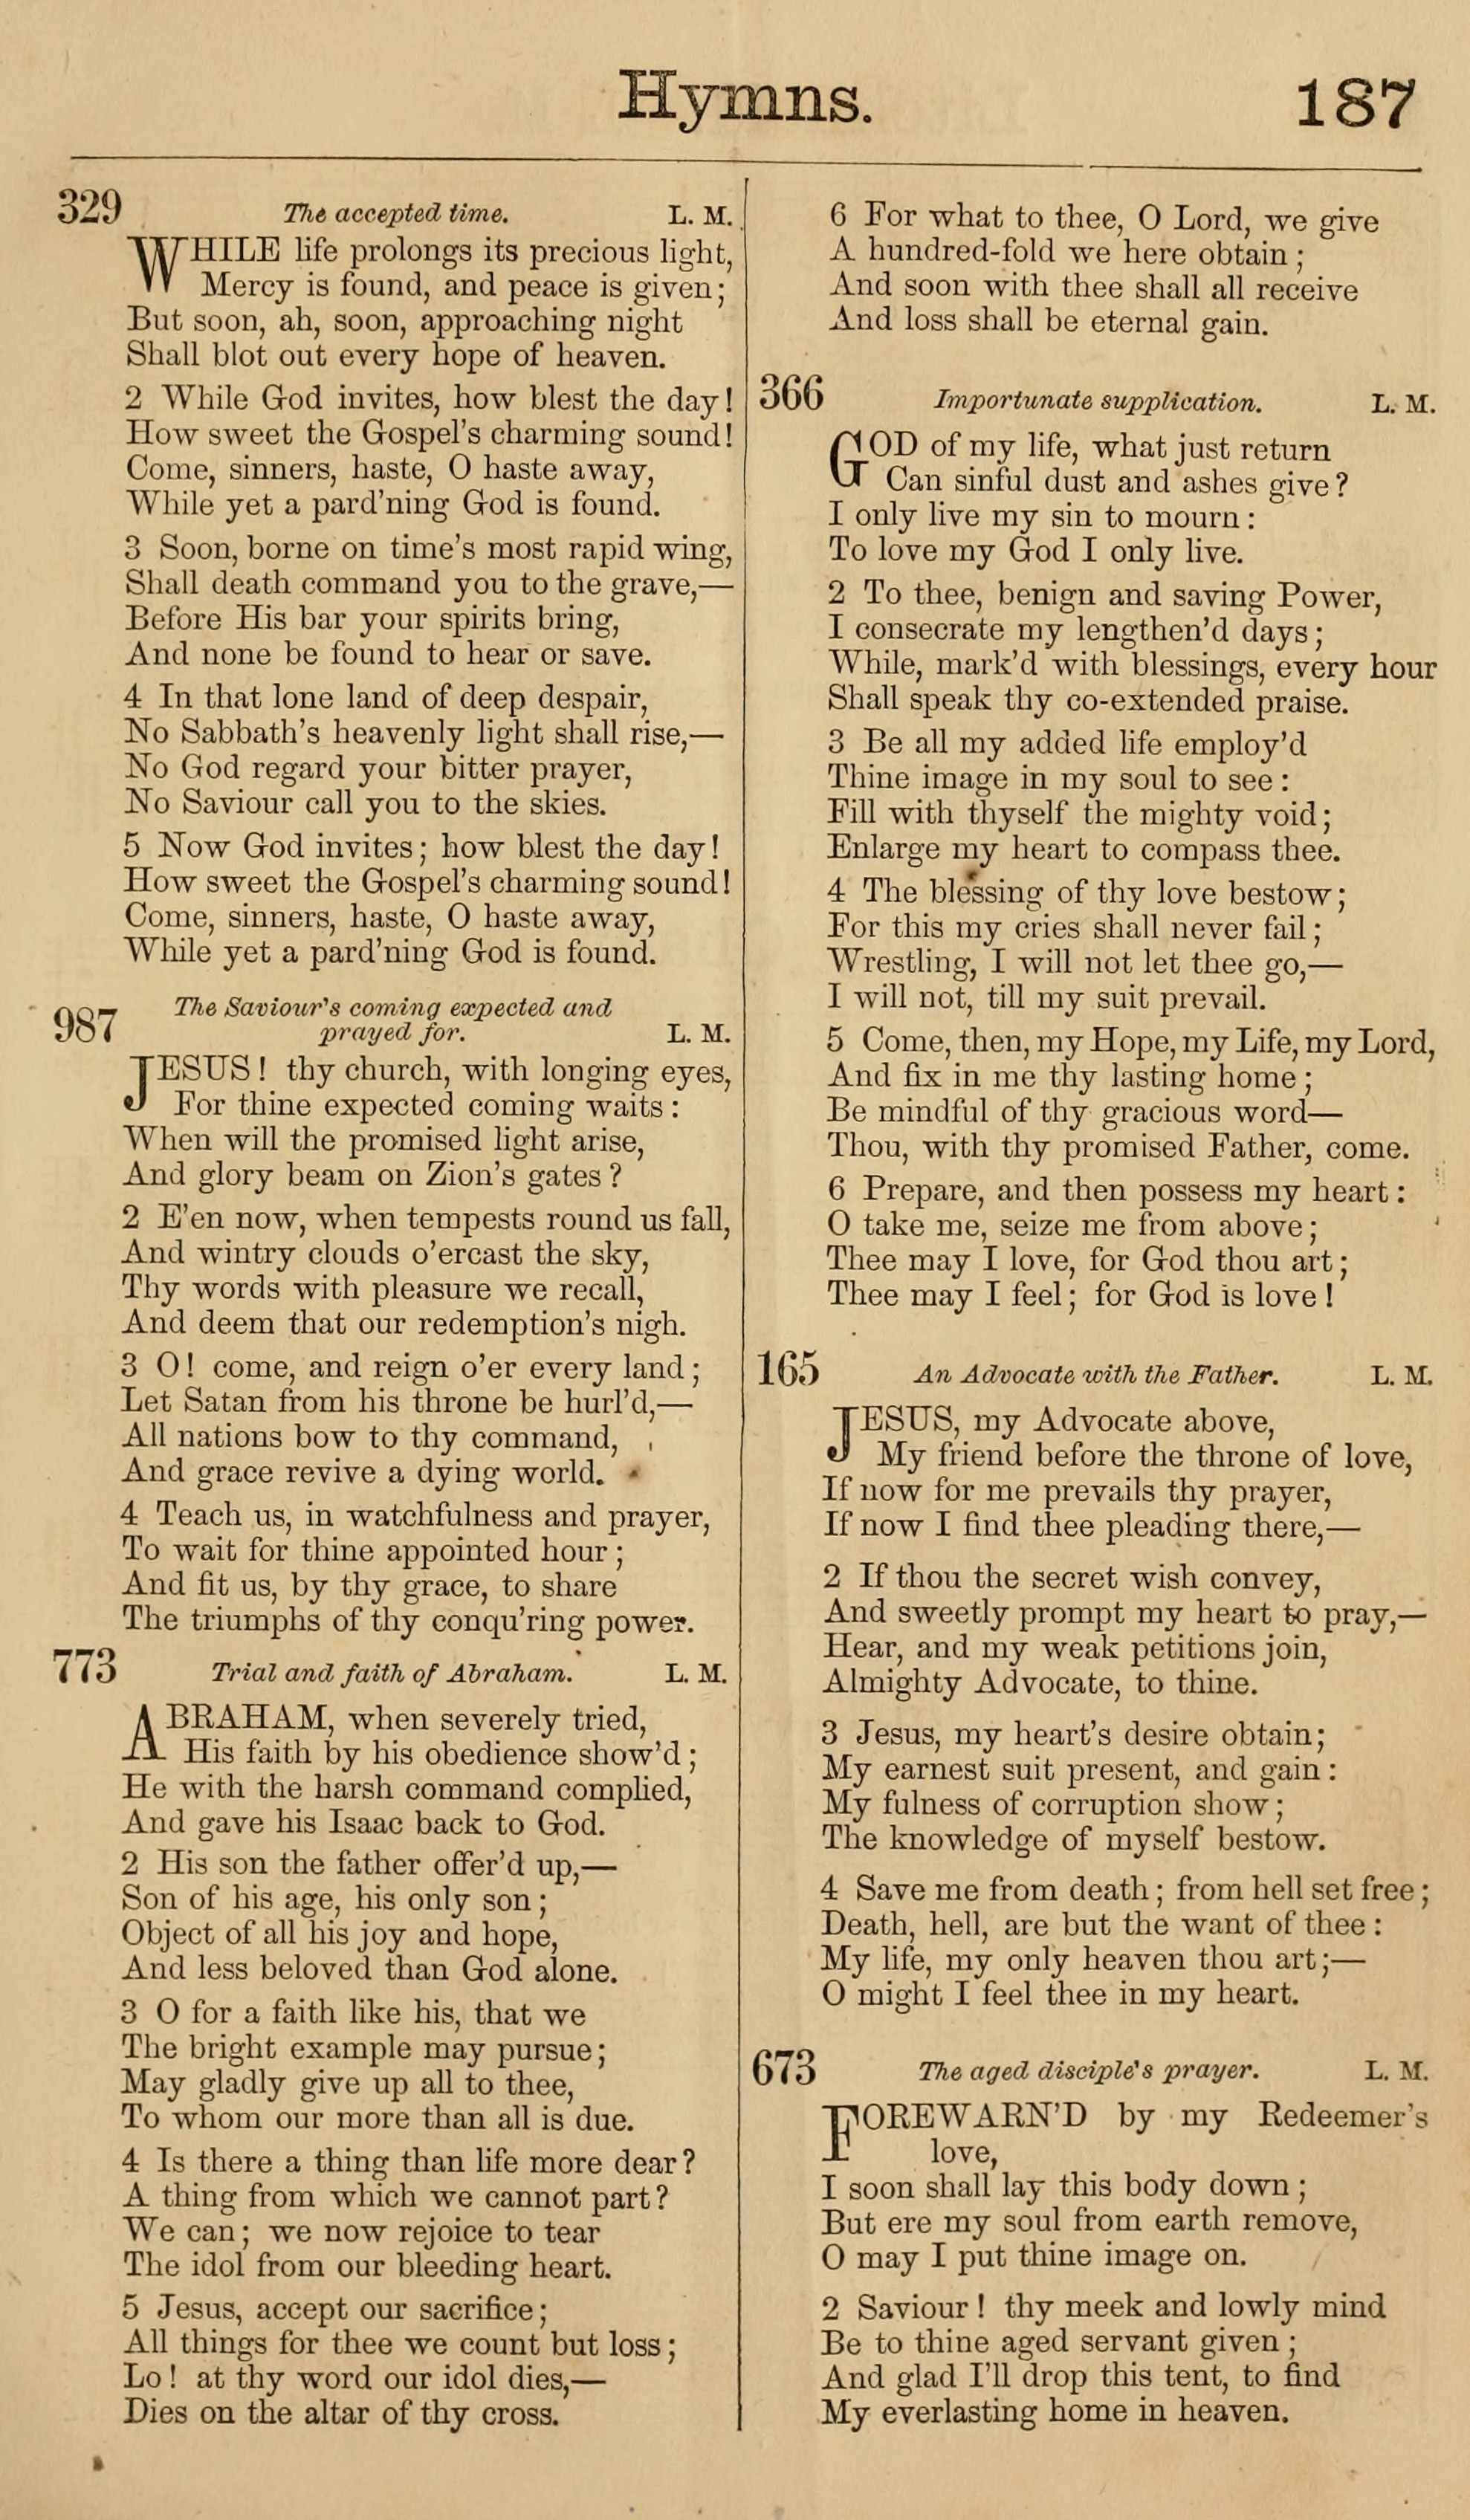 Hymns. 187
329 The accepted time. L. M.
WHILE life prolongs its precious light,
Mercy is found, and peace is given;
But soon, ah, soon, approaching night
Shall blot out every hope of heaven.
2 While God invites, how blest the day!
How sweet the Gospel's charming sound!
Come, sinners, haste, O haste away,
While yet a pard'ning God is found.
3 Soon, borne on time's most rapid wing,
Shall death command you to the grave,—
Before His bar your spirits bring,
And none be found to hear or save.
4 In that lone land of deep despair,
No Sabbath's heavenly light shall rise,—
No God regard your bitter prayer,
No Saviour call you to the skies.
5 Now God invites; how blest the day!
How sweet the Gospel's charming sound!
Come, sinners, haste, O haste away,
While yet a pard'ning God is found.
The Saviour's coming expected and
987 prayed for. L. M.
JESUS! thy church, with longing eyes,
For thine expected coming waits:
When will the promised light arise,
And glory beam on Zion's gates?
2 E'en now, when tempests round us fall,
And wintry clouds o'ercast the sky,
Thy words with pleasure we recall,
And deem that our redemption's nigh.
3 O! come, and reign o'er every land;
Let Satan from his throne be hurl'd,—
All nations bow to thy command,
And grace revive a dying world.
4 Teach us, in watchfulness and prayer,
To wait for thine appointed hour;
And fit us, by thy grace, to share
The triumphs of thy conqu'ring power.
773 Trial and faith of Abraham. L. M.
ABRAHAM, when severely tried,
His faith by his obedience show'd;
He with the harsh command complied,
And gave his Isaac back to God.
2 His son the father offer'd up,—
Son of his age, his only son;
Object of all his joy and hope,
And less beloved than God alone.
3 O for a faith like his, that we
The bright example may pursue;
May gladly give up all to thee,
To whom our more than all is due.
4 Is there a thing than life more dear?
A thing from which we cannot part?
We can; we now rejoice to tear
The idol from our bleeding heart.
5 Jesus, accept our sacrifice;
All things for thee we count but loss;
Lo! at thy word our idol dies,—
Dies on the altar of thy cross.
6 For what to thee, O Lord, we give
A hundred-fold we here obtain;
And soon with thee shall all receive
And loss shall be eternal gain.
366 Importunate supplication. L. M.
GOD of my life, what just return
Can sinful dust and ashes give?
I only live my sin to mourn:
To love my God I only live.
2 To thee, benign and saving Power,
I consecrate my lengthen'd days;
While, mark'd with blessings, every hour
Shall speak thy co-extended praise.
3 Be all my added life employ'd
Thine image in my soul to see:
Fill with thyself the mighty void;
Enlarge my heart to compass thee.
4 The blessing of thy love bestow;
For this my cries shall never fail;
Wrestling, I will not let thee go,—
I will not, till my suit prevail.
5 Come, then, my Hope, my Life, my Lord,
And fix in me thy lasting home;
Be mindful of thy gracious word—
Thou, with thy promised Father, come.
6 Prepare, and then possess my heart:
O take me, seize me from above;
Thee may I love, for God thou art;
Thee may I feel; for God is love!
165 An Advocate with the Father. L. M.
JESUS, my Advocate above,
My friend before the throne of love,
If now for me prevails thy prayer,
If now I find thee pleading there,—
2 If thou the secret wish convey,
And sweetly prompt my heart to pray,—
Hear, and my weak petitions join,
Almighty Advocate, to thine.
3 Jesus, my heart's desire obtain;
My earnest suit present, and gain:
My fulness of corruption show;
The knowledge of myself bestow.
4 Save me from death; from hell set free;
Death, hell, are but the want of thee:
My life, my only heaven thou art;—
O might I feel thee in my heart.
673 The aged disciple's prayer. L. M.
FOREWARN'D by my Redeemer's
love,
I soon shall lay this body down;
But ere my soul from earth remove,
O may I put thine image on.
2 Saviour! thy meek and lowly mind
Be to thine aged servant given;
And glad I'll drop this tent, to find
My everlasting home in heaven.